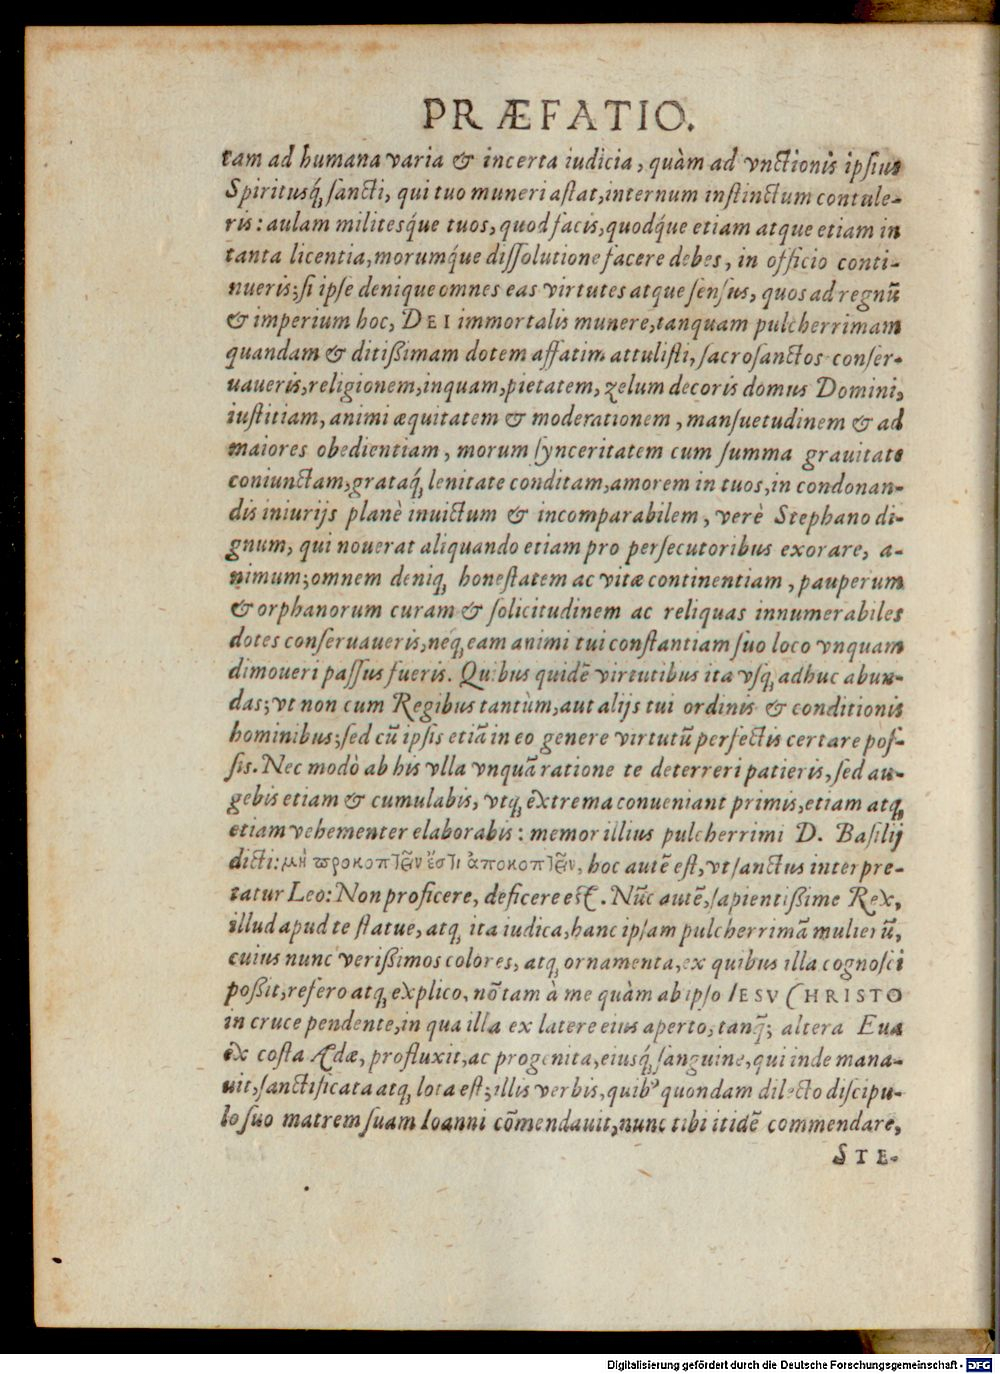 PRÆFATIO.
tam ad humana varia & incerta iudicia, quàm ad vnctionis ipsius
Spiritusq́ꝫ sancti, qui tuo muneri astat, internum instinctum contule-
ris: aulam militesq́ue tuos, quod facis, quodq́ue etiam atque etiam in
tanta licentia, morumq́ue dissolutione facere debes, in officio conti-
nueris; si ipse denique omnes eas virtutes atque sensus, quos ad regnū
& imperium hoc, DEI immortalis munere, tanquam pulcherrimam
quandam & ditißimam dotem affatim attulisti, sacrosanctos conser-
uaueris, religionem, inquam, pietatem, zelum decoris domus Domini,
iustitiam, animi æquitatem & moderationem, mansuetudinem & ad
maiores obedientiam, morum synceritatem cum summa grauitate
coniunctam, grataq́ꝫ lenitate conditam, amorem in tuos, in condonan-
dis iniurijs planè inuictum & incomparabilem, verè Stephano di-
gnum, qui nouerat aliquando etiam pro persecutoribus exorare, a-
nimum; omnem deniqꝫ honestatem ac vitæ continentiam, pauperum
& orphanorum curam & solicitudinem ac reliquas innumerabiles
dotes conseruaueris, néqꝫ eam animi tui constantiam suo loco vnquam
dimoueri passus fueris. Quibus quidē virtutibus ita vsq́ꝫ adhuc abun-
das; vt non cum Regibus tantùm, aut alijs tui ordinis & conditionis
hominibus; sed cū ipsis etiā in eo genere virtutū perfectis certare pos-
sis. Nec modò ab his vlla vnquā ratione te deterreri patieris, sed au-
gebis etiam & cumulabis, vtqꝫ extrema conueniant primis, etiam atqꝫ
etiam vehementer elaborabis: memor illius pulcherrimi D. Basilij
dicti: μὴ προκοπτῶν ἔστι ἀποκοπτῶν, hoc autē est, vt sanctus interpre-
tatur Leo: Non proficere, deficere est. Nūc autē, sapientißime Rex,
illud apud te statue, atqꝫ ita iudica, hanc ipsam pulcherrimā mulierū,
cuius nunc verißimos colores, atqꝫ ornamenta, ex quibus illa cognosci
poßit, refero atqꝫ explico, nō tam à me quàm ab ipso IESV CHRISTO
in cruce pendente, in qua illa ex latere eius aperto, tanq̄ꝫ altera Eua
ex costa Adæ, profluxit, ac progenita, eiusq́ꝫ sanguine, qui inde mana-
uit, sanctificata atqꝫ lota est; illis verbis, quibꝰ quondam dilecto discipu-
lo suo matrem suam Ioanni cōmendauit, nunc tibi itidē commendare,
STE-
Digitalisierung gefördert durch die Deutsche Forschungsgemeinschaft - DFG